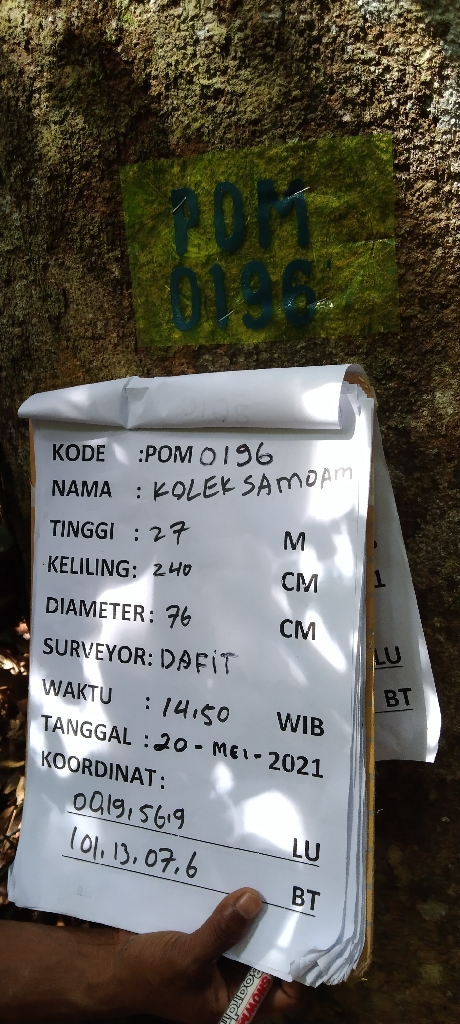 POM
0196
KODE :POM 0196
NAMA : KOLEK SAMOAM
TINGGI : 27 M
KELILING: 240 CM
DIAMETER: 76 CM
SURVEYOR: DAFIT
WAKTU : 14.50 WIB
TANGGAL : 20 - MEI - 2021
KOORDINAT:
00.19,56.9 LU
101.13.07.6 BT
LU
BT